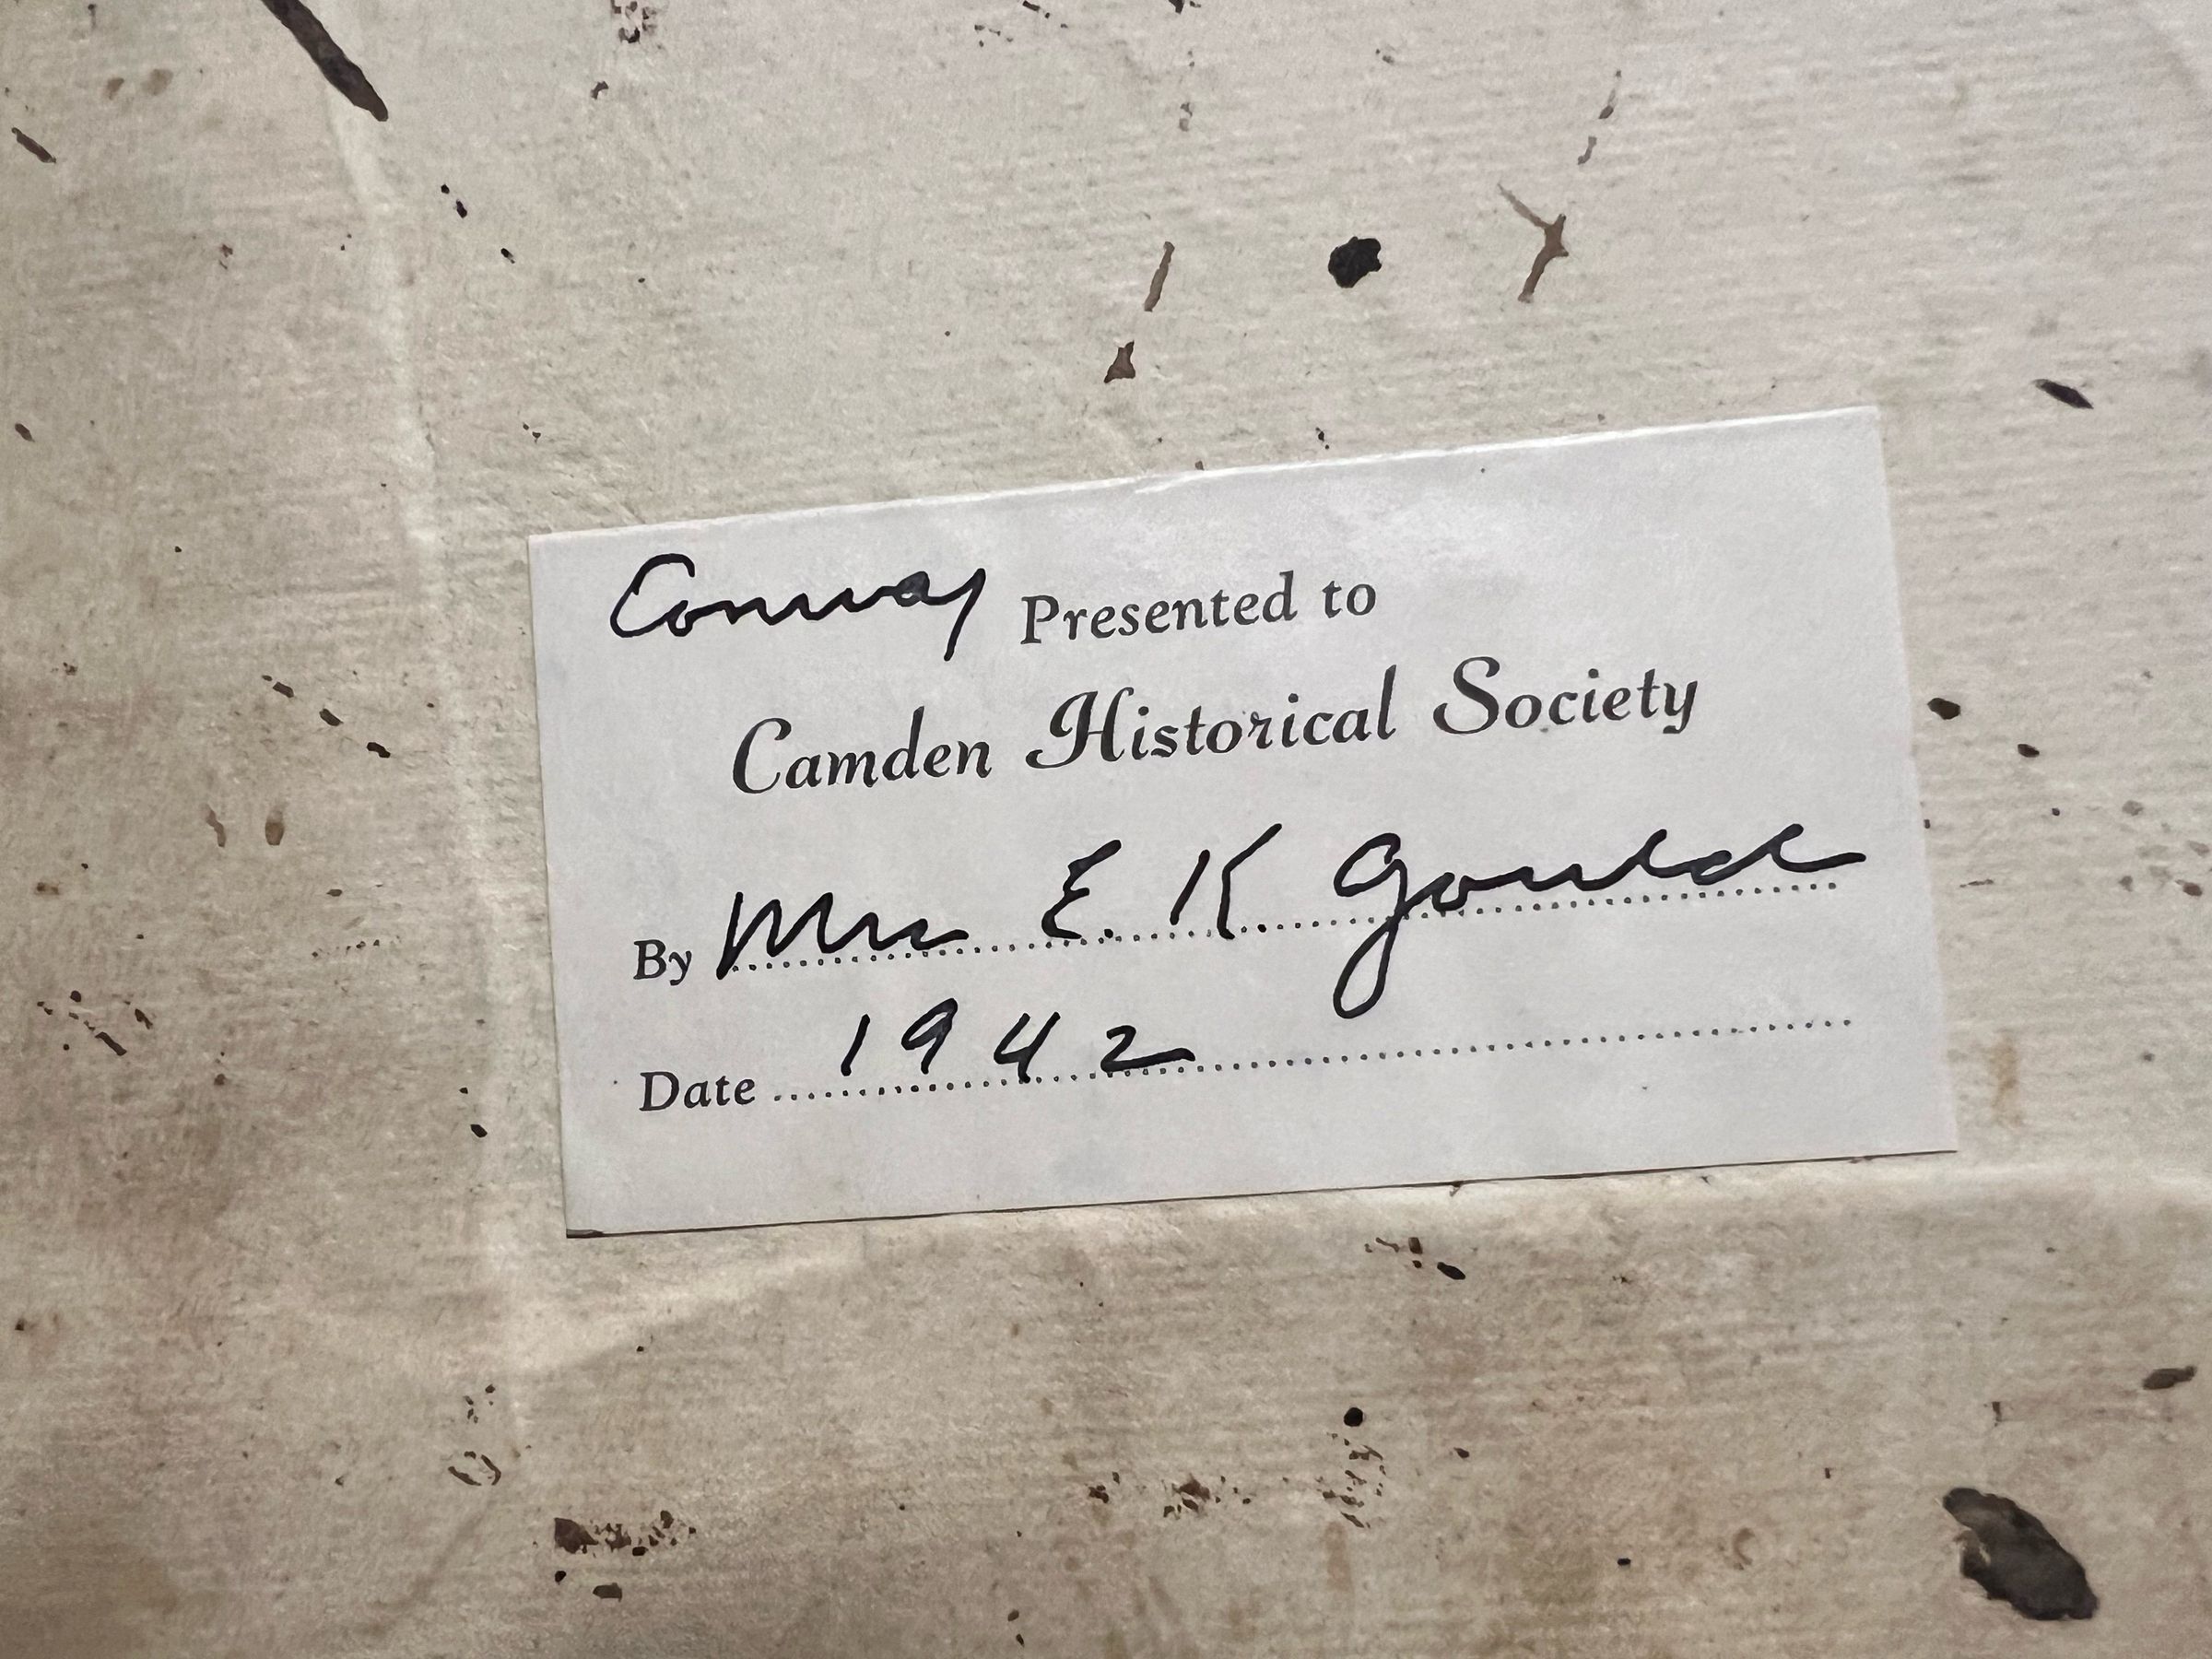 Conway Presented to
Camden Historical Society
By Mrs E. K. Gould
Date 1942